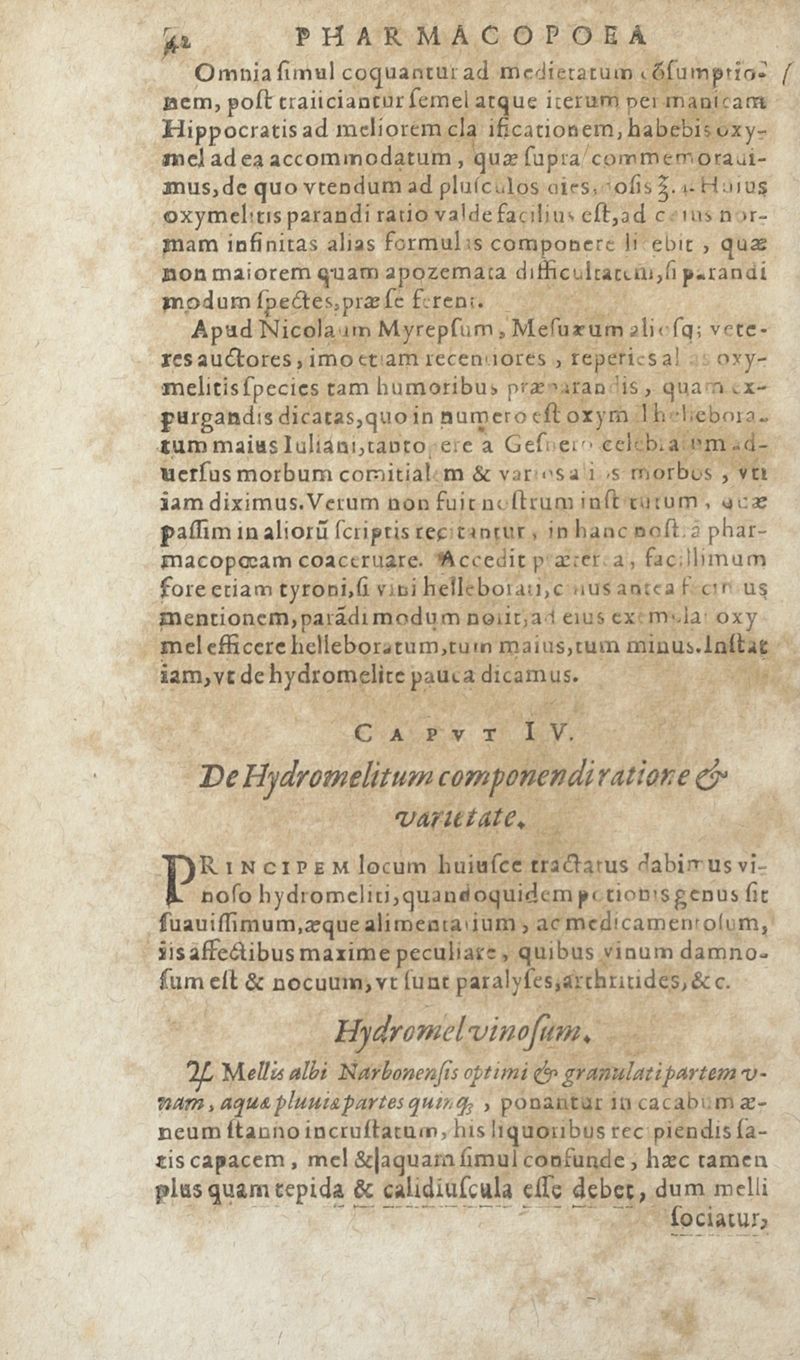 42 PHARMACOPOEA
Omnia ſimul coquantur ad medietatum cõſumptio-
nem, poſt traiiciantur ſemel atque iterum per manicam
Hippocratis ad meliorem cla ificationem, habebis oxy-
mel ad ea accommodatum, quæ ſupra commemoraui-
mus, de quo vtendum ad pluſculos dies, doſis ℥. 1. Huius
oxymelitis parandi ratio valde facilius eſt, ad cuius nor-
mam infinitas alias formulas componere li ebit, quæ
non maiorem quam apozemata difficultatem, ſi parandi
modum ſpectes, præ ſe ferent.
Apud Nicolaum Myrepſum, Meſuæum alioſq; vete-
res auctores, imo etiam recentiores, reperies al as oxy-
melitis ſpecies tam humoribus præparandis, quam ex-
purgandis dicatas, quo in numero eſt oxym l helebora-
tum maius Iuliani, tantopere à Geſnero celebratum ad-
uerſus morbum comitialem & varios alios morbos, vti
iam diximus. Verum non fuit noſtrum inſtitutum, quæ
paſſim in aliorũ ſcriptis recitantur, in hanc noſtrã phar-
macopœam coaceruare. Accedit præterea, facillimum
fore etiam tyroni, ſi vini helleborati, cuius antea f us
mentionem, parãdi modum norit, ad eius exempla oxy
mel efficere helleboratum, tum maius, tum minus. Inſtat
iam, vt de hydromelite pauca dicamus.
CAPVT IV.
De Hydromelitum componendi ratione &
varietate.
PRINCIPEM locum huiuſce tractatus dabimus vi-
noſo hydromeliti, quandoquidem potionis genus ſit
ſuauiſſimum, æque alimentarium, ac medicamentoſum,
iis affectibus maxime peculiare, quibus vinum damno-
ſum eſt & nocuum, vt ſunt paralyſes, arthritides, &c.
Hydromel vinoſum.
♃ Mellis albi Narbonenſis optimi & granulati partem v-
nam, aquæ pluuiæ partes quinq; , ponantur in cacabum æ-
neum ſtanno incruſtatum, his liquoribus recipiendis ſa-
tis capacem, mel & aquam ſimul confunde, hæc tamen
plus quam tepida & calidiuſcula eſſe debet, dum melli
ſociatur,